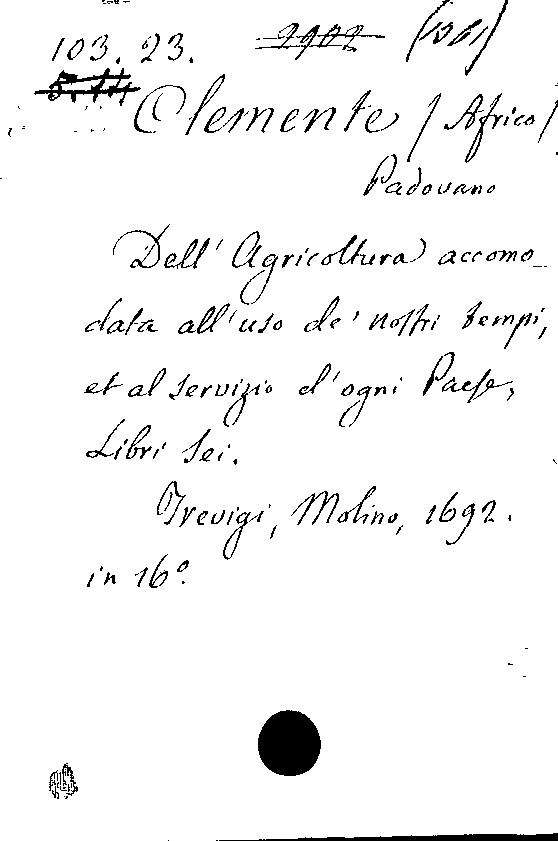 103. 23. 2902 (1361)
5. 14
Clemente / Africo /
Padovano
Dell' Agricoltura accomo_
data all' uso de' nostri tempi,
et al servizio d' ogni Paese,
Libri sei.
Trevigi, Molino, 1692.
in 16º.